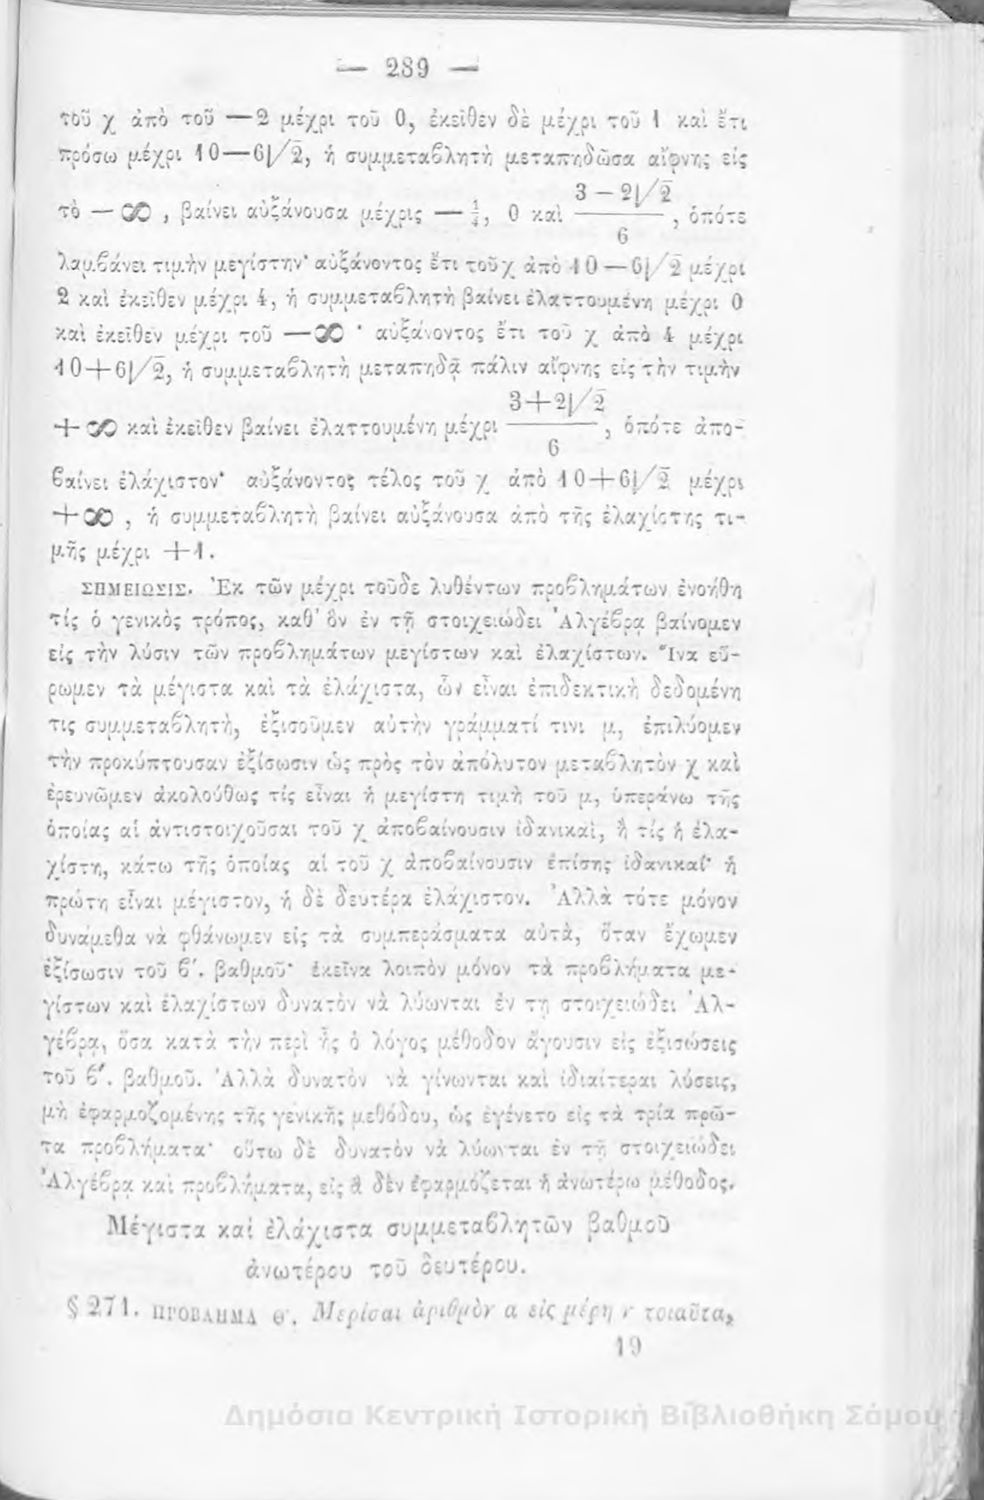 — 289 —
τοῦ χ ἀπὸ τοῦ —2 μέχρι τοῦ 0, ἐκεῖθεν δὲ μέχρι τοῦ 1 καὶ ἔτι
πρόσω μέχρι 10—6√2, ἡ συμμεταβλητὴ μεταπηδῶσα αἴφνης εἰς
τὸ — ∞ , βαίνει αὐξάνουσα μέχρις — ¼, 0 καὶ (3 — 2√2)/6 , ὁπότε
λαμβάνει τιμὴν μεγίστην· αὐξάνοντος ἔτι τοῦ χ ἀπὸ 10 — 6√2 μέχρι
2 καὶ ἐκεῖθεν μέχρι 4, ἡ συμμεταβλητὴ βαίνει ἐλαττουμένη μέχρι 0
καὶ ἐκεῖθεν μέχρι τοῦ —∞ · αὐξάνοντος ἔτι τοῦ χ ἀπὸ 4 μέχρι
10+6√2, ἡ συμμεταβλητὴ μεταπηδᾷ πάλιν αἴφνης εἰς τὴν τιμὴν
+ ∞ καὶ ἐκεῖθεν βαίνει ἐλαττουμένη μέχρι (3+2√2)/6 , ὁπότε ἀπο-
βαίνει ἐλάχιστον· αὐξάνοντος τέλος τοῦ χ ἀπὸ 10+6√2 μέχρι
+∞ , ἡ συμμεταβλητὴ βαίνει αὐξάνουσα ἀπὸ τῆς ἐλαχίστης τι-
μῆς μέχρι +1.
ΣΗΜΕΙΩΣΙΣ. Ἐκ τῶν μέχρι τοῦδε λυθέντων προβλημάτων ἐνοήθη
τίς ὁ γενικὸς τρόπος, καθ᾽ ὃν ἐν τῇ στοιχειώδει Ἀλγέβρᾳ βαίνομεν
εἰς τὴν λύσιν τῶν προβλημάτων μεγίστων καὶ ἐλαχίστων. Ἵνα εὕ-
ρωμεν τὰ μέγιστα καὶ τὰ ἐλάχιστα, ὧν εἶναι ἐπιδεκτικὴ δεδομένη
τις συμμεταβλητή, ἐξισοῦμεν αὐτὴν γράμματί τινι μ, ἐπιλύομεν
τὴν προκύπτουσαν ἐξίσωσιν ὡς πρὸς τὸν ἀπόλυτον μεταβλητὸν χ καὶ
ἐρευνῶμεν ἀκολούθως τίς εἶναι ἡ μεγίστη τιμὴ τοῦ μ, ὑπεράνω τῆς
ὁποίας αἱ ἀντιστοιχοῦσαι τοῦ χ ἀποβαίνουσιν ἰδανικαί, ἢ τίς ἡ ἐλα-
χίστη, κάτω τῆς ὁποίας αἱ τοῦ χ ἀποβαίνουσιν ἐπίσης ἰδανικαί· ἡ
πρώτη εἶναι μέγιστον, ἡ δὲ δευτέρα ἐλάχιστον. Ἀλλὰ τότε μόνον
δυνάμεθα νὰ φθάνωμεν εἰς τὰ συμπεράσματα αὐτά, ὅταν ἔχωμεν
ἐξίσωσιν τοῦ β΄. βαθμοῦ· ἐκεῖνα λοιπὸν μόνον τὰ προβλήματα με-
γίστων καὶ ἐλαχίστων δυνατὸν νὰ λύωνται ἐν τῇ στοιχειώδει Ἀλ-
γέβρᾳ, ὅσα κατὰ τὴν περὶ ἧς ὁ λόγος μέθοδον ἄγουσιν εἰς ἐξισώσεις
τοῦ β΄. βαθμοῦ. Ἀλλὰ δυνατὸν νὰ γίνωνται καὶ ἰδιαίτεραι λύσεις,
μὴ ἐφαρμοζομένης τῆς γενικῆς μεθόδου, ὡς ἐγένετο εἰς τὰ τρία πρῶ-
τα προβλήματα· οὕτω δὲ δυνατὸν νὰ λύωνται ἐν τῇ στοιχειώδει
Ἀλγέβρᾳ καὶ προβλήματα, εἰς ἃ δὲν ἐφαρμόζεται ἡ ἀνωτέρω μέθοδος.
Μέγιστα καὶ ἐλάχιστα συμμεταβλητῶν βαθμοῦ
ἀνωτέρου τοῦ δευτέρου.
§ 271. ΠΡΟΒΛΗΜΑ Θ΄. Μερίσαι ἀριθμὸν α εἰς μέρη ν τοιαῦτα,
19
Δημόσια Κεντρική Ιστορική Βιβλιοθήκη Σάμου